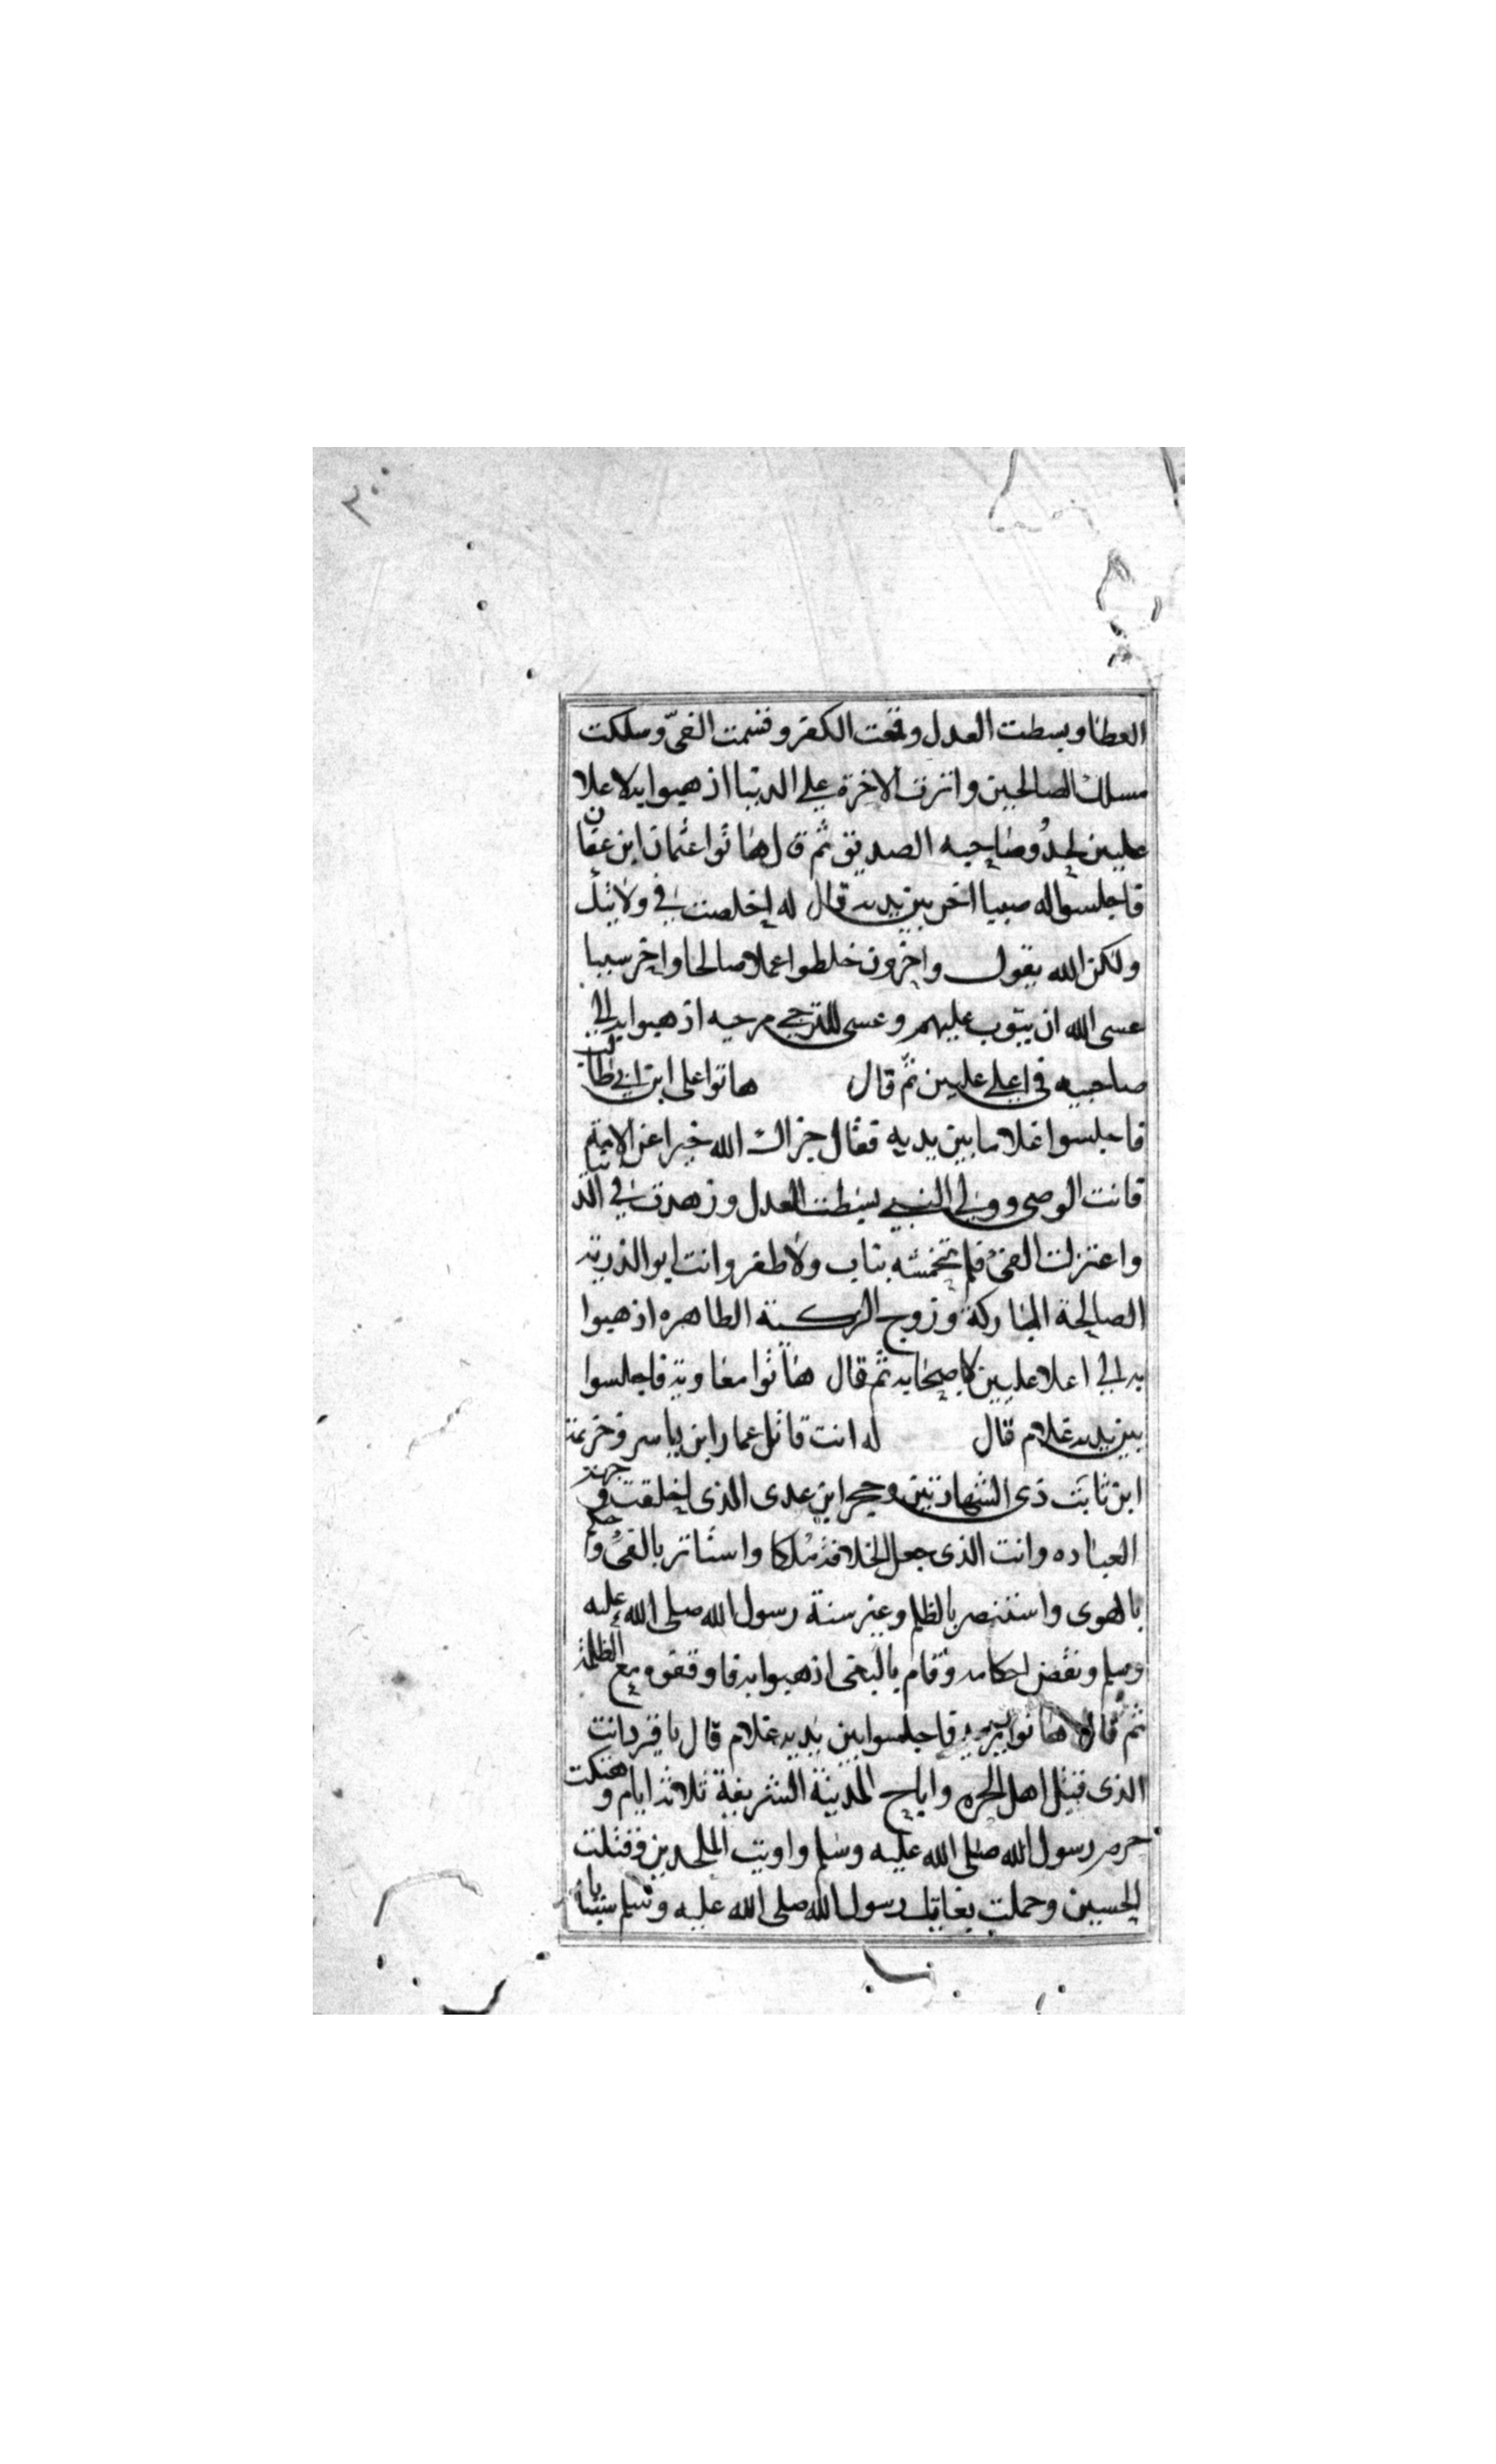 ٢٠٠
العطا وبسطت العدل وقمعت الكفر وقسمت الفىّ وسلكت
مسلك الصالحين واثرت الاخرة على الدنيا اذهبوا به لاعلا
عليين لجده وصاحبه الصديق ثم قال هاتوا عثمان ابن عفان
فاجلسوا له صبيا اخر بين يديه قال له اخلصت في ولايتك
ولكن الله يقول واخرون خلطوا عملا صالحا واخر سييا
عسى الله ان يتوب عليهم وعسى للترجي مرحيه اذهبوا به الى
صاحبيه في اعلى عليين ثم قال هاتوا على ابن ابي طالب
فاجلسوا غلاما بين يديه فقال جزاك الله خيرا عن الامة
فانت الوصى وولي النبي بسطت العدل وزهدت في الدنيا
واعتزلت الفئ فلم تخمشه بناب ولا ظفر وانت ابو الذرية
الصالحة المباركة وزوج الزكية الطاهره اذهبوا
به الى اعلا عليين كاصحابه ثم قال هاتوا معاوية فاجلسوا
بين يديه غلام قال له انت قاتل عمار ابن ياسر وخزيمة
ابن ثابت ذى الشهادتين وحجر ابن عدى الذى اخلقت وجهه
العباده وانت الذى جعل الخلافة ملكا واستاثر بالفئ وحكم
بالهوى واستنصر بالظلم وغير سنة رسول الله صلى الله عليه
وسلم ونقض احكامه وقام بالبغى اذهبوا به فاوقفوه مع الظلمة
ثم قال هاتوا يزيد فاجلسوا بين يديه غلام قال يا قرد انت
الذى قتل اهل الحره واباح المدينة الشريفة ثلاثة ايام وهتكت
حرم رسول الله صلى الله عليه وسلم واويت الملحدين وقتلت
الحسين وحملت بنات رسول الله صلى الله عليه وسلم سبايا